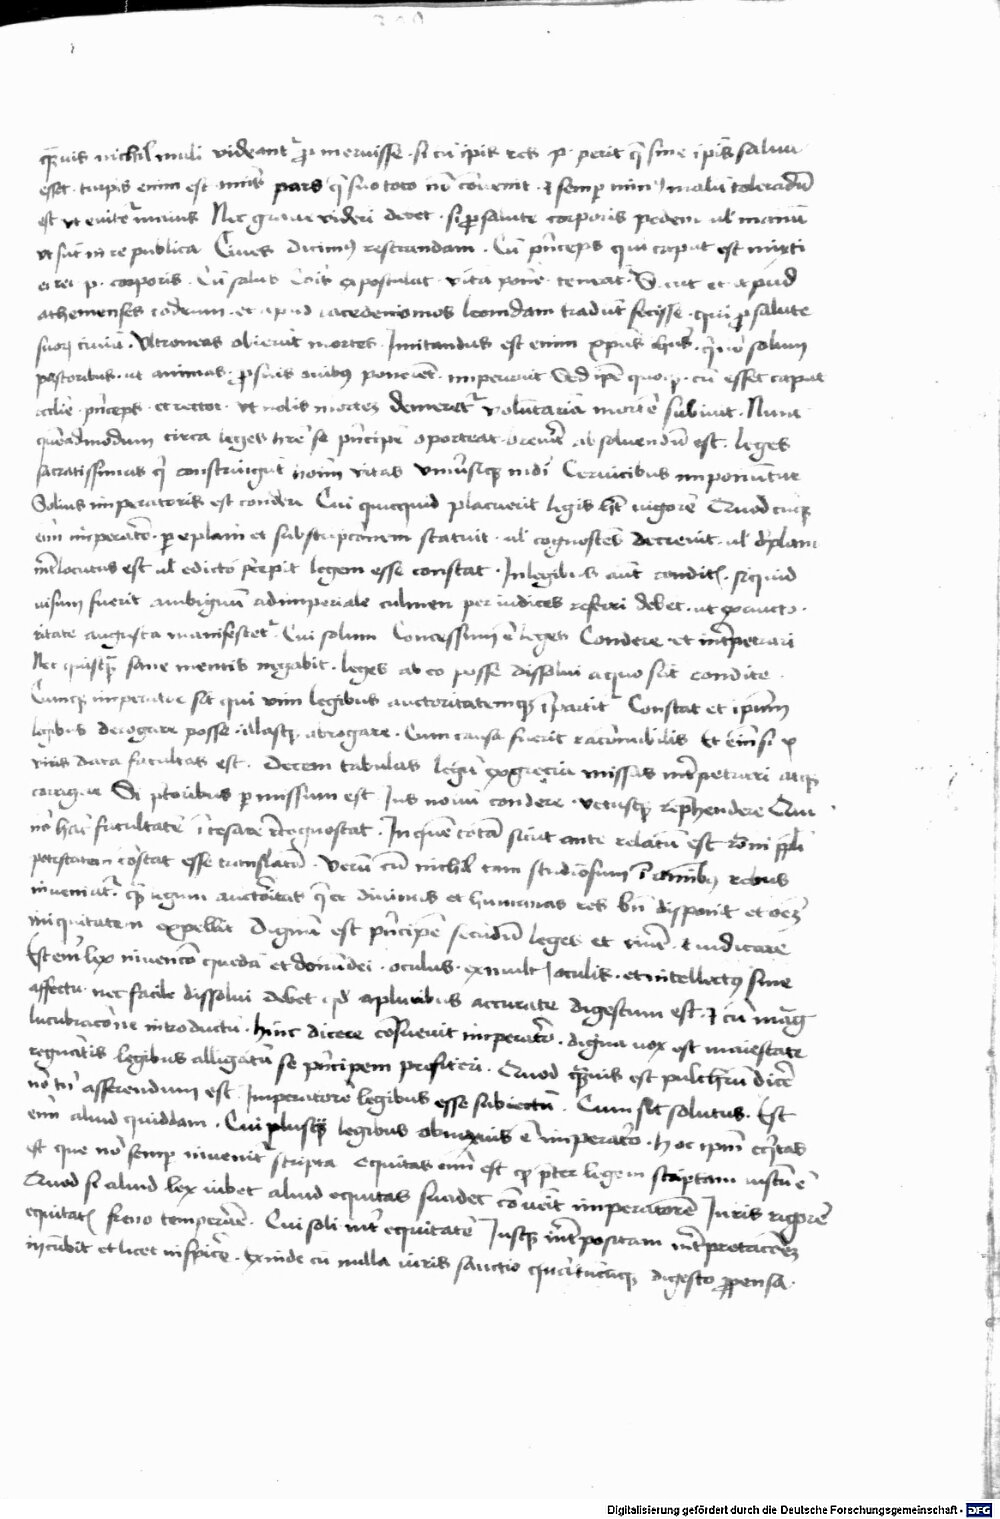 quāuis nichil mali videant᷑ ꝓmeruisse · si cū ipīs res · p · perit q̄ sine ipīs salua
esset · turpis enim est om̄is pars q̄ suo toto nō cōuenit · ⁊ semp min⁹ malū tolerādū
est vt euitet᷑ maius Nec graue videri debet · si ꝓ salute corporis pedem ul̄ manū
vt sūt in re publica Ciues dicimus resecandam · Cū prīceps qui caput est misti
ci rei · p · corporis · Cū salus cōis expostulat vitā pone̅ teneat᷑ Sicut et apud
athenienses codrum · et apud lacedemonios leonidam tradūt fecisse · qui ꝓ salute
suoꝝ ciuiū · Vltroneas obierūt mortes · Imitandus est enim xp̄us ih̄us · q̄ nō solum
pastoribus · ut animas · ꝓ suis ouib⁹ ponerēt · imperauit Sed ipē quoqꝫ · cū esset caput
eccl̄ie · prīceps · et rector · vt nos a morte demeret᷑ voluntariā mortē subiuit · Nunc
quēadmodum circa leges h̄re se prīcipē oporteat · breuit̄ absoluendū est · leges
sacratissimas q̄ constringūt hoīm vitas vniuersiqꝫ mūdi Ceruicibus imponūtur
Solius imperatoris est condere Cui quicquid placuerit legis h̄t vigorē Quod cuqꝫ
enī imperatōr · per eplam et subscripcionem statuit · ul̄ cognoscens decreuit · ul̄ de plano
int̄locutus est ul̄ edicto p̄cepit legem esse constat · In legibus aūt conditꝭ · si quid
visum fuerit ambiguū ad imperiale culmen per iudices referri debet · ut ex aucto ·
ritate augusta manifestet᷑ · Cui solum Concessum ē leges Condere · et int̄pretari
Nec quisqꝫ sane mentis negabit · leges ab eo posse dissolui a quo sūt condite ·
Cumqꝫ imperator sit qui vim legibus auctoritatemqꝫ īpartit᷑ Constat et ipsum
legibus derogare posse · illasqꝫ abrogare · Cum causa fuerit racionabilis Et enī si x
viris data facultas est · decem tabulas legū ex grecia missas int̄pretari atqꝫ
corrigere Si p̄toribus permissum est Ius nouū condere · vetusqꝫ rephendere Quis
nō hāc facultatē ī cesare recognoscat · In quē totā sicut ante relatū est romī ppl̄i
potestatem cōstat esse translatā · Verū cū nichil tam studiosum ī omnibus rebus
inueniat᷑ · q̄ legum auctoritas que et diuinas et humanas res bn̄ disponit et oēm
iniquitatem expellit Dignū est prīcipē secūdū leges et viue̅ ⁊ iudicare
Est enī lex inuencō quedā et donū dei · oculus · ex mult⁹ oculis · et intellectus sine
affectu · nec facile dissolui debet qd̄ a pluribus accurate digestum est · ⁊ cū mag̅
lucubracōne introductū · hinc dicere cōsueuit imperatōr · digna vox est maiestate
regnātis legibus alligatū se prīcipem profiteri · Quod quāuis est pulchrū dictū
nō tn̄ asserendum est Imperatore legibus esse subiectū · Cum sit solutus · Est
enī aliud quiddam · Cui plusqꝫ legibus obnoxius ē imperatōr · hoc ipm̄ equitas
est que nō semp inuenit᷑ scripta equitas enī est qꝫ p̄ter legem scriptam iustū ē
Quod si aliud lex iubet aliud equitas suadet cōueit imperatorē Iuris rigorē
equitatꝭ freno temperare · Cui soli int̄ equitatē Iusqꝫ int̄positam int̄pretacionē
incūbit et licet inspice̅ · Exinde cū nulla iuris sanctio quātūcūqꝫ digesto ꝓpensa ·
Digitalisierung gefördert durch die Deutsche Forschungsgemeinschaft - DFG